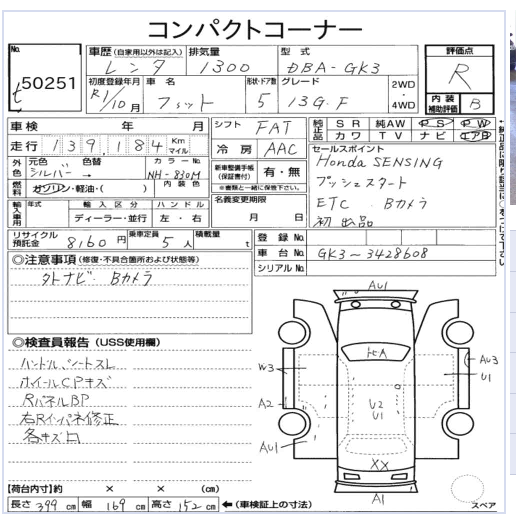 コンパクトコーナー
No. 50251
七
車歴 (自家用以外は記入) レンタ
排気量 1300
型式 DBA-GK3
評価点 R
初度登録年月 R1/10月
車名 フィット
形状・ドア数 5
グレード 13G・F
2WD・4WD
内装補助評価 B
車検 年 月
シフト FAT
純正品 SR 純AW PS PW
カワ TV ナビ エアB
走行 139,184 Km マイル
冷房 AAC
セールスポイント
Honda SENSING
プッシュスタート
ETC Bカメラ
初出品
外色 元色 シルバー 色替 → カラーNo. NH-830M
新車整備手帳(保証書付) 有・無
※書類と一緒に保管下さい。
燃料 ガソリン・軽油・( ) 内装色
名義変更期限
月 日
輸入車用 年式 輸入区分 ハンドル
ディーラー・並行 左・右
リサイクル預託金 8160円
乗車定員 5人
積載量 t
登録No.
車台No. GK3-3428608
シリアルNo.
◎注意事項 (修復・不具合箇所および状態等)
外ナビ・Bカメラ
◎検査員報告 (USS使用欄)
ハンドル,シートスレ
ホイールCPキズ
RパネルBP
右Rインパネ修正
各キズ凹
AU1
W3
A2
AU1
AU3
U1
U2
U1
XX
A1
スペア
【荷台内寸】約 × × (cm)
長さ 399 cm 幅 169 cm 高さ 152 cm ←(車検証上の寸法)